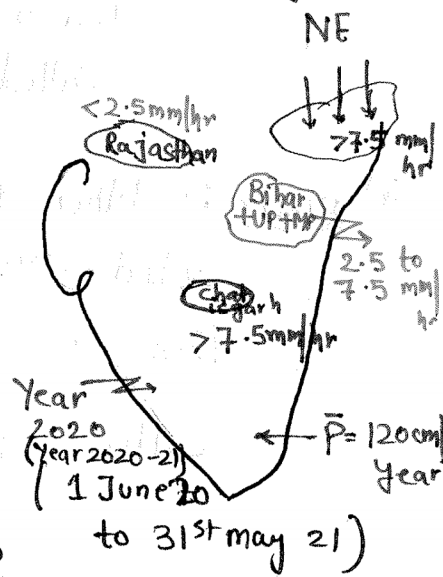 NE
<2.5mm/hr
Rajasthan
>7.5 mm/
hr
Bihar
+UP+MP
2.5 to
7.5 mm/
hr
Chat
isgarh
>7.5mm/hr
Year
2020
(Year 2020-21)
( 1 June 20
to 31st may 21)
P̄ = 120cm/
Year